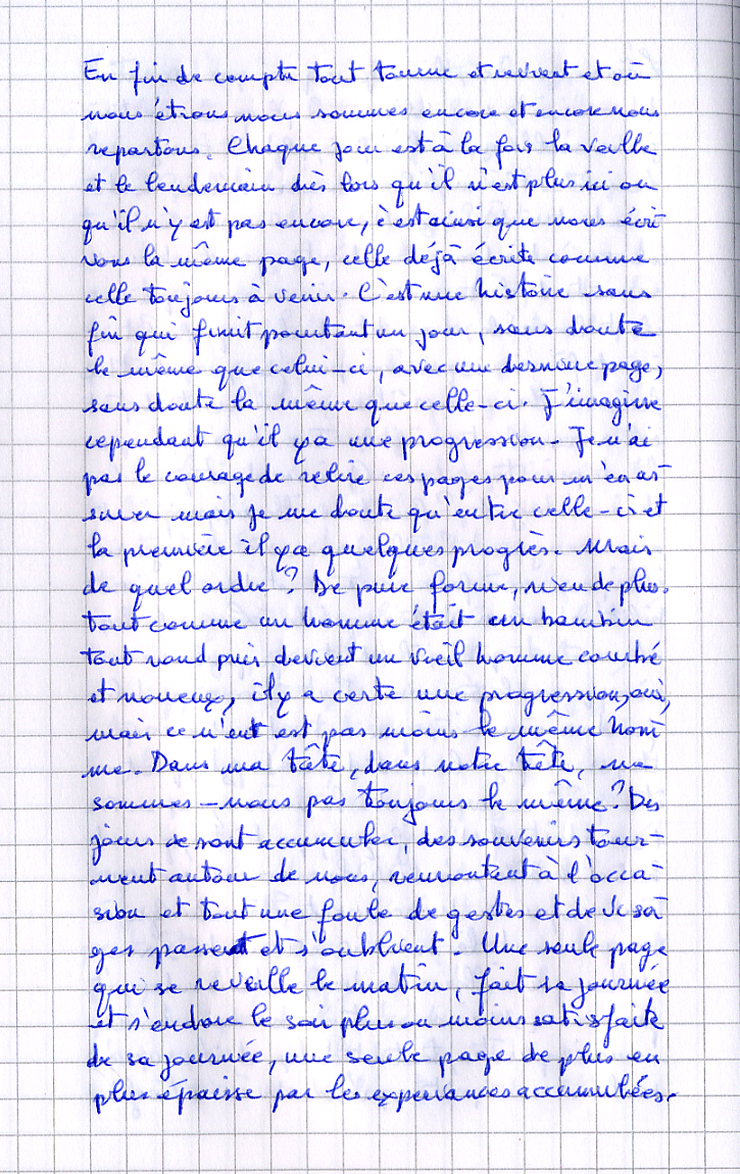 En fin de compte tout tourne et revient et où
nous étions nous sommes encore et encore nous
repartons. Chaque jour est à la fois la veille
et le lendemain dès lors qu'il n'est plus ici ou
qu'il n'y est pas encore, c'est ainsi que nous écri
vons la même page, celle déjà écrite comme
celle toujours à venir. C'est une histoire sans
fin qui finit pourtant un jour, sans doute
le même que celui-ci, avec une dernière page,
sans doute la même que celle-ci. J'imagine
cependant qu'il y a une progression. Je n'ai
pas le courage de relire ces pages pour m'en as-
surer mais je me doute qu'entre celle-ci et
la première il y a quelques progrès. Mais
de quel ordre? De pure forme, rien de plus.
tout comme un homme était un bambin
tout rond puis devient un vieil homme courbé
et noueux, il y a certe une progression, oui,
mais ce n'ent est pas moins le même hom
me. Dans ma tête, dans notre tête, ne
sommes-nous pas toujours le même? Des
jours se sont accumuler, des souvenirs tour-
nent autour de nous, remontent à l'occa-
sion et tout une foule de gestes et de visa
ges passent et s'oublient. Une seule page
qui se reveille le matin, fait sa journée
et s'endore le soir plus ou moins satisfaite
de sa journée, une seule page de plus en
plus épaisse par les experiances accumulées.